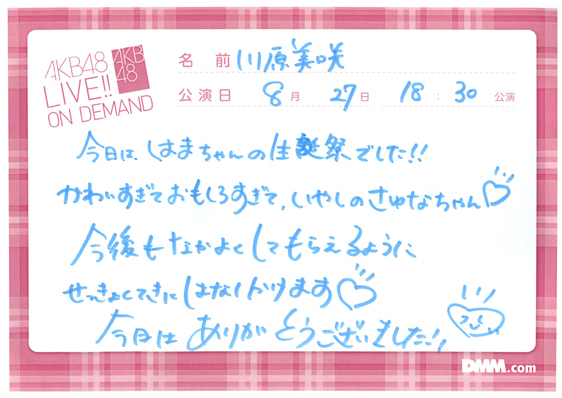 AKB48
LIVE!!
ON DEMAND
AKB
48
名前 川原美咲
公演日 8月 27日 18:30 公演
今日は、はまちゃんの生誕祭でした!!
かわいすぎておもしろすぎて、いやしのさゆなちゃん♡
今後もなかよくしてもらえるように
せっきょくてきにはなしかけます♡
今日は ありがとうございました!!
DMM.com